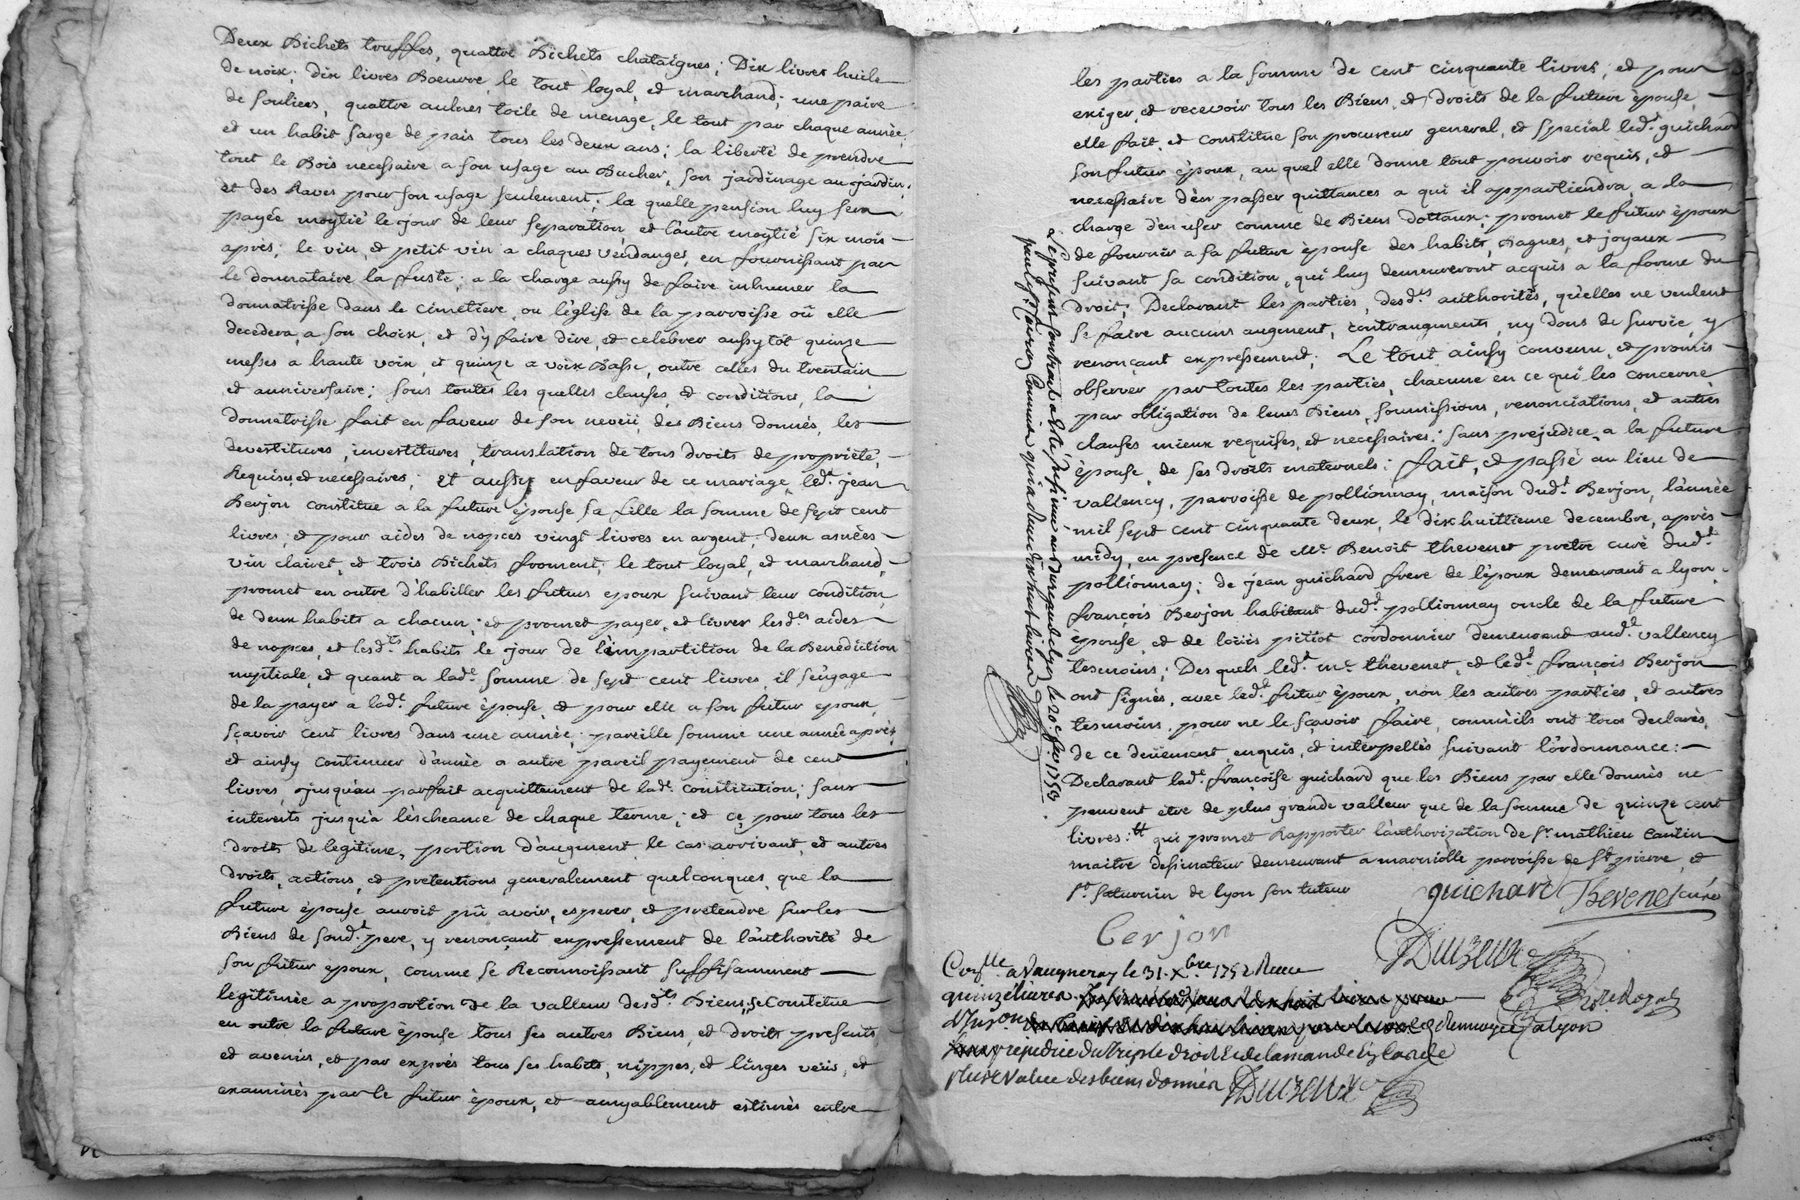 Deux Bichets truffes, quattre Bichets chataignes; Dix livres huile
de noix; dix livres Boeurre, le tout loyal, et marchand; une paire
de souliers, quattre aulnes toile de menage, le tout par chaque année,
et un habit sarge de païs tous les deux ans; la liberté de prendre
tout le Bois necessaire a son usage au Bucher, son jardinage au jardin,
et des Raves pour son usage seulement; la quelle pension luy sera
payée moytié le jour de leur separation, et l'autre moytié six mois
après; le vin, et petit vin a chaques vendanges, en fournissant par
le donnataire la fuste; a la charge aussy de faire inhumer la
donnatrisse dans le cimetiere, ou l'église de la parroisse où elle
decedera, a son choix, et d'y faire dire, et celebrer aussytôt quinze
messes a haute voix, et quinze a voix Basse, outre celles du trentain
et anniversaire; sous toutes les quelles clauses, et conditions, la
donnatrisse fait en faveur de son neveü, des Biens donnés, les
devestitures, investitures, translation de tous droits de proprieté,
Requises, et necessaires; et aussy en faveur de ce mariage, led.t jean
Berjon constitue a la future épouse sa fille la somme de sept cent
livres; et pour aides de nopces vingt livres en argent; deux asnées
vin clairet, et trois Bichets froment; le tout loyal, et marchand,
promet en outre d'habiller les futurs epoux suivant leur condition,
de deux habits a chacun; et promet payer, et livrer lesd.ts aides
de nopces, et lesd.ts habits le jour de l'impartition de la Benediction
nuptiale, et quant a lad.e somme de sept cent livres, il s'engage
de la payer a lad.e future épouse, et pour elle a son futur epoux,
sçavoir cent livres dans une année; pareille somme une année après,
et ainsy continuer d'année a autre pareil payement de cent
livres, jusqu'au parfait acquittement de lad.e constitution; sans
interests jusqu'à l'èscheance de chaque terme; et ce pour tous les
droits de legitime, portion d'augment le cas arrivant, et autres
droits, actions, et pretentions generalement quelconques, que la
future épouse auroit pû avoir, esperer, et pretendre sur les
Biens de sond.t pere, y renonçant expressement de l'authorité de
son futur époux, comme se Reconnoissant suffisamment
legitimée a proportion de la valleur desd.ts Biens; se Constitue
en outre la future épouse tous ses autres Biens, et droits presents,
et avenir, et par exprés tous ses habits, nippes, et linges veüs, et
examinés par le futur époux, et amyablement estimés entre
les parties a la somme de cent cinquante livres; et pour
exiger, et recevoir tous les Biens, et droits de la future épouse,
elle fait, et constitue son procureur general, et special led.t guichard
son futur époux, au quel elle donne tout pouvoir requis, et
necessaire d'en passer quittances a qui il appartiendra, a la
charge d'en user comme de Biens dottaux; promet le futur époux
de fournir a sa future épouse des habits, Bagues, et joyaux
suivant sa condition, qui luy demeureront acquis a la forme du
droit; Declarant les parties, desd.es authorités, qu'elles ne veulent
se faire aucuns augment, contraugment, ny dons de survie, y
renonçant expressement; Le tout ainsy convenu, et promis
observer par toutes les parties, chacune en ce qui les concerne
par obligation de leurs Biens, soumissions, renonciations, et autres
clauses mieux requises, et necessaires; sans prejudice a la future
épouse de ses droits maternels; fait, et passé au lieu de
vallency, parroisse de pollionnay, maison dud.t Berjon, l'année
mil sept cent cinquante deux, le dixhuittieme decembre, après
midy, en presence de me. Benoit thevenet pretre curé dud.t
pollionnay; de jean guichard frere de l'époux demeurant a lyon,
françois Berjon habitant dud.t pollionnay oncle de la future
épouse, et de loüis pitiot cordonnier demeurant aud.t vallency
tesmoins; Des quels led.t me. thevenet, et led.t françois Berjon
ont signés, avec led.t futur époux, non les autres parties, et autres
tesmoins, pour ne le sçavoir faire, comm'ils ont tous declarés,
de ce deüement enquis, et interpellés suivant l'ordonnance:
Declarant lad.e françoise guichard que les Biens par elle donnés ne
peuvent etre de plus grande valleur que de la somme de quinze cent
livres: qui promet Rapporter l'authorization de Sr mathieu cantin
maitre desinateur demeurant a marniolle parroisse de St pierre, et
St saturnin de lyon son tuteur
guichard Thevenet curé
berjon
DuiZeux
Con.lle a Vaugneray le 31. Xbre 1752 Receu
quinze livres
d'Insi.on renvoyée a lyon
prejudice du triple droit et de la mande en cas de
plus value des biens donnés DuiZeux
le present contrat a été insinué au bureau de lyon le 20e fev. 1753